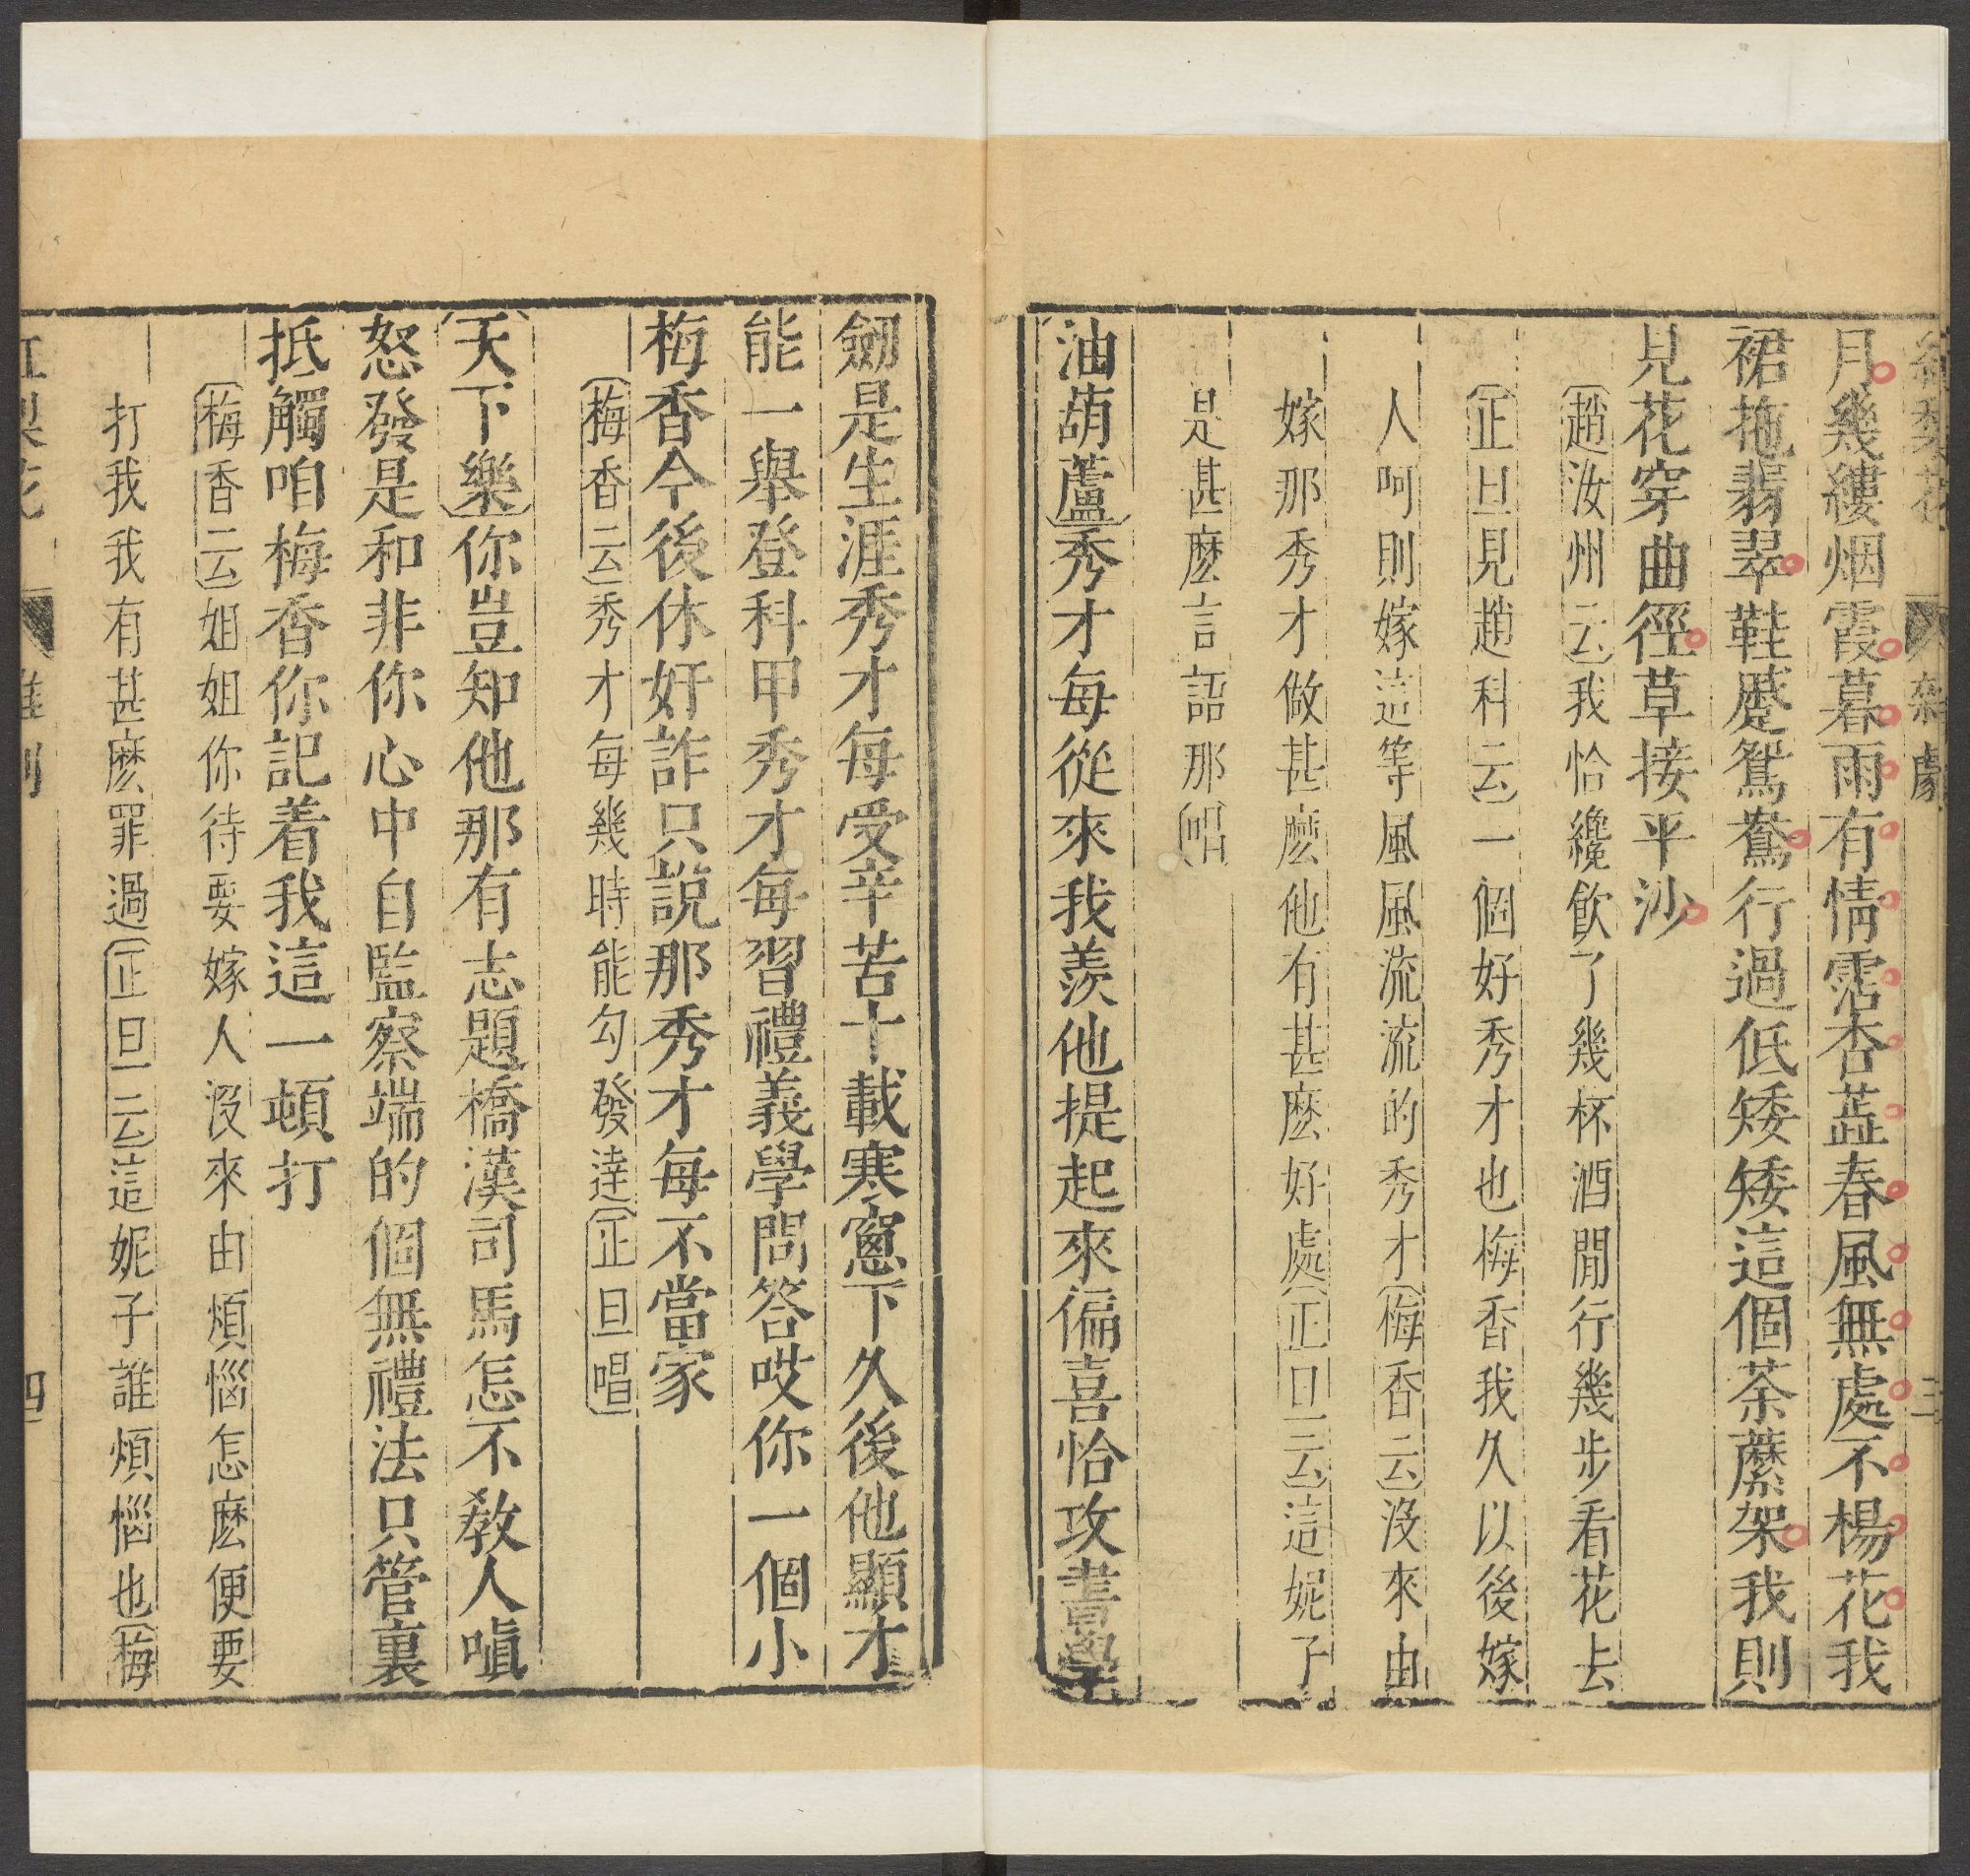 紅梨花 雜劇 三
月幾縷烟霞暮雨有情霑杏蕋春風無處不楊花我
裙拖翡翠鞋蹙鴛鴦行過低矮矮這個荼蘼架我則
見花穿曲徑草接平沙
(趙汝州云)我恰纔飲了幾杯酒閒行幾步看花去
(正旦見趙科云)一個好秀才也梅香我久以後嫁
人呵則嫁這等風風流流的秀才(梅香云)沒來由
嫁那秀才做甚麽他有甚麽好處(正旦云)這妮子
是甚麽言語那(唱)
(油葫蘆)秀才每從來我羨他提起來偏喜恰攻書學
劒是生涯秀才每受辛苦十載寒窻下久後他顯才
能一舉登科甲秀才每習禮義學問答哎你一個小
梅香今後休奸詐只說那秀才每不當家
(梅香云)秀才每幾時能勾發達(正旦唱)
(天下樂)你豈知他那有志題橋漢司馬怎不教人嗔
怒發是和非你心中自監察端的個無禮法只管裏
抵觸咱梅香你記着我這一頓打
(梅香云)姐姐你待要嫁人沒來由煩惱怎麽便要
打我我有甚麽罪過(正旦云)這妮子誰煩惱也(梅
紅梨花 雜劇 四